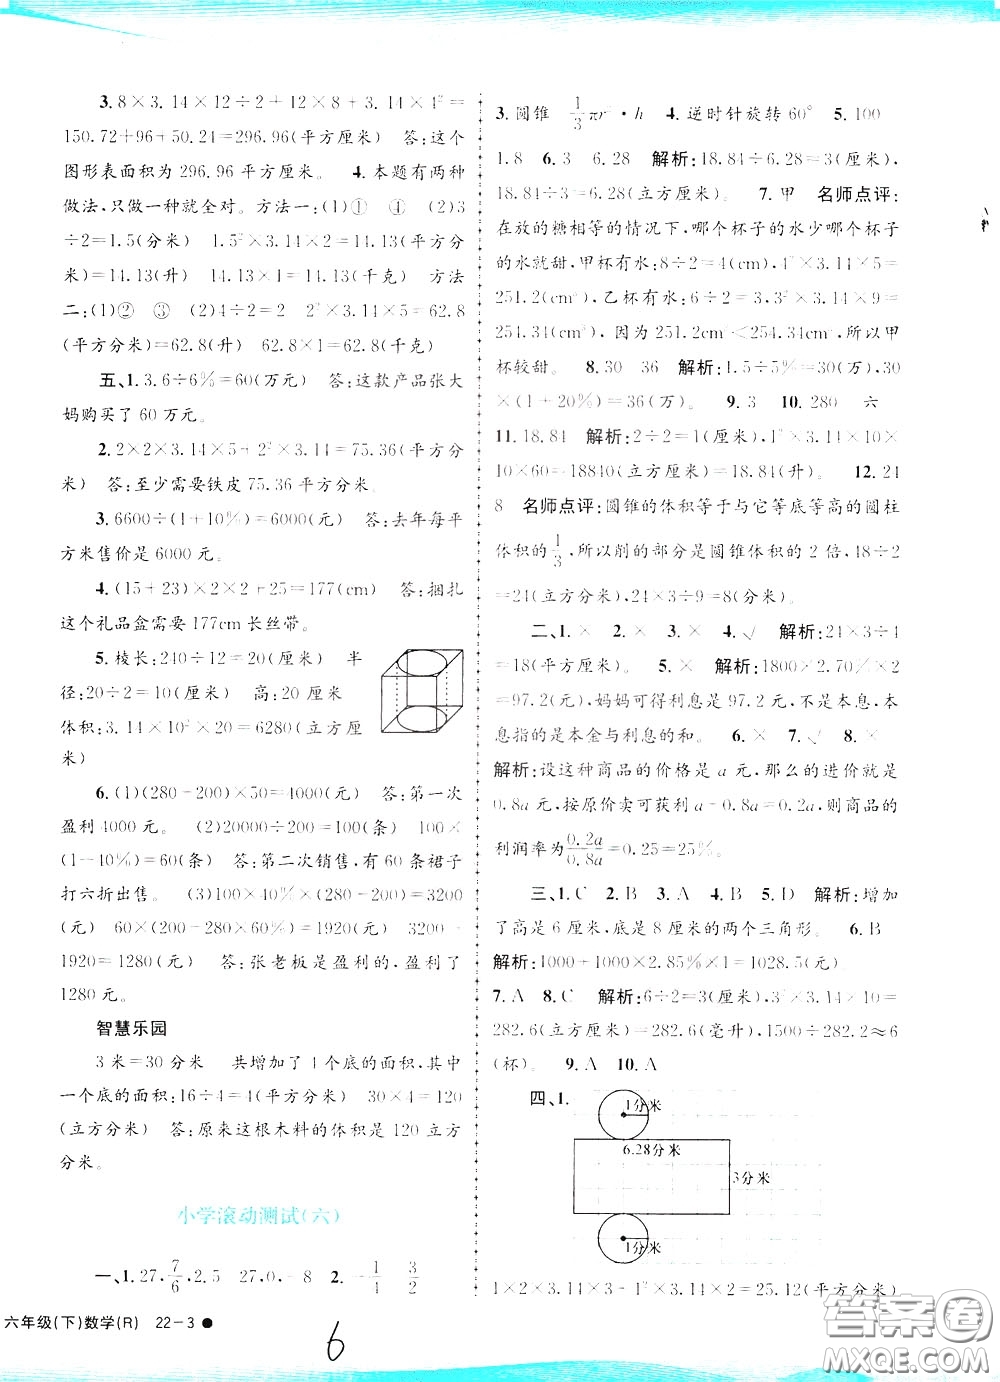 3. 8×3.14×12÷2+12×8+3.14×4²=
150.72+96+50.24=296.96(平方厘米) 答:这个
图形表面积为 296.96 平方厘米。 4. 本题有两种
做法,只做一种就全对。方法一:(1)① ④ (2)3
÷2=1.5(分米) 1.5²×3.14×2=14.13(平方分
米)=14.13(升) 14.13×1=14.13(千克) 方法
二:(1)② ③ (2)4÷2=2 2²×3.14×5=62.8
(平方分米)=62.8(升) 62.8×1=62.8(千克)
五、1. 3.6÷6%=60(万元) 答:这款产品张大
妈购买了 60 万元。
2. 2×2×3.14×5+2²×3.14=75.36(平方分
米) 答:至少需要铁皮 75.36 平方分米。
3. 6600÷(1+10%)=6000(元) 答:去年每平
方米售价是 6000 元。
4. (15+23)×2×2+25=177(cm) 答:捆扎
这个礼品盒需要 177cm 长丝带。
5. 棱长:240÷12=20(厘米) 半
径:20÷2=10(厘米) 高:20 厘米
体积:3.14×10²×20=6280(立方厘
米)
6. (1)(280-200)×50=4000(元) 答:第一次
盈利 4000 元。 (2)20000÷200=100(条) 100×
(1-40%)=60(条) 答:第二次销售,有 60 条裙子
打六折出售。 (3)100×40%×(280-200)=3200
(元) 60×(200-280×60%)=1920(元) 3200-
1920=1280(元) 答:张老板是盈利的,盈利了
1280 元。
智慧乐园
3 米=30 分米 共增加了 4 个底的面积,其中
一个底的面积:16÷4=4(平方分米) 30×4=120
(立方分米) 答:原来这根木料的体积是 120 立方
分米。
小学滚动测试(六)
一、1. 27,7/6,2.5 27,0,-8 2. -1/4 3/2
3. 圆锥 1/3πr²·h 4. 逆时针旋转 60° 5. 100
1.8 6. 3 6.28 解析:18.84÷6.28=3(厘米)
18.84÷3=6.28(立方厘米) 7. 甲 名师点评:
在放的糖相等的情况下,哪个杯子的水少哪个杯子
的水就甜,甲杯有水:8÷2=4(cm),4²×3.14×5=
251.2(cm³),乙杯有水:6÷2=3,3²×3.14×9=
254.34(cm³),因为 251.2cm³<254.34cm³,所以甲
杯较甜。 8. 30 36 解析:1.5÷5%=30(万),
30×(1+20%)=36(万)。 9. 3 10. 280 六
11. 18.84 解析:2÷2=1(厘米) 1²×3.14×10×
10×60=18840(立方厘米)=18.84(升) 12. 24
8 名师点评:圆锥的体积等于与它等底等高的圆柱
体积的1/3,所以削的部分是圆锥体积的 2 倍,48÷2
=24(立方分米),24×3÷9=8(分米)。
二、1. × 2. × 3. × 4. √ 解析:24×3÷4
=18(平方厘米) 5. × 解析:1800×2.70%×2
=97.2(元),妈妈可得利息是 97.2 元,不是本息,本
息指的是本金与利息的和。 6. × 7. √ 8. ×
解析:设这种商品的价格是 a 元,那么的进价就是
0.8a 元,按原价卖可获利 a-0.8a=0.2a,则商品的
利润率为0.2a/0.8a=0.25=25%。
三、1. C 2. B 3. A 4. B 5. D 解析:增加
了高是 6 厘米,底是 8 厘米的两个三角形。 6. B
解析:1000+1000×2.85%×1=1028.5(元)
7. A 8. C 解析:6÷2=3(厘米),3²×3.14×10=
282.6(立方厘米)=282.6(毫升),1500÷282.2≈6
(杯)。 9. A 10. A
四、1.
1分米
6.28分米
3分米
1分米
1×2×3.14×3+1²×3.14×2=25.12(平方分米)
六年级(下)数学(R) 22-3 ●
6
答案圈
MXQE.COM